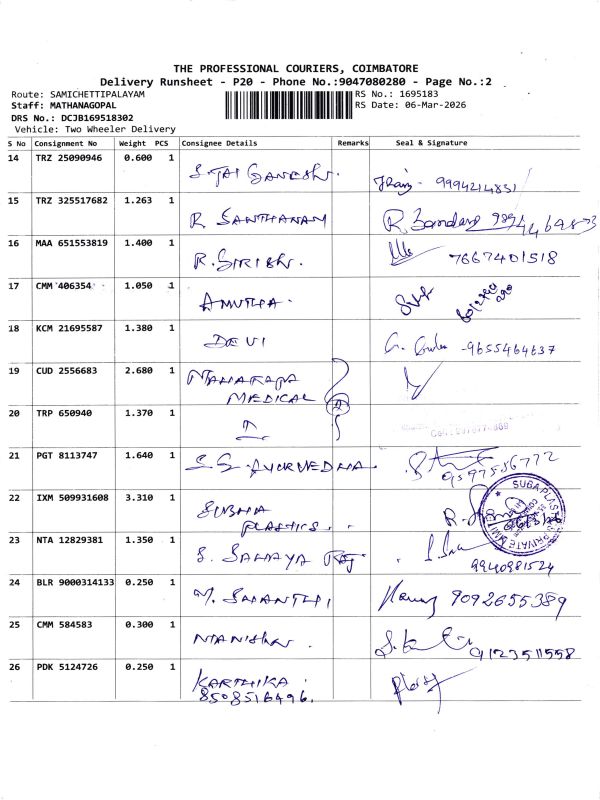 THE PROFESSIONAL COURIERS, COIMBATORE
Delivery Runsheet - P20 - Phone No.:9047080280 - Page No.:2
Route: SAMICHETTIPALAYAM RS No.: 1695183
Staff: MATHANAGOPAL RS Date: 06-Mar-2026
DRS No.: DCJB169518302
Vehicle: Two Wheeler Delivery
S No Consignment No Weight PCS Consignee Details Remarks Seal & Signature
14 TRZ 25090946 0.600 1 S. JAI GANESH. 9994214831
15 TRZ 325517682 1.263 1 R SANTHANAM
16 MAA 651553819 1.400 1 R. SIRISH. 7667401518
17 CMM 406354 1.050 1 AMUTHA.
18 KCM 21695587 1.380 1 DEVI - 9655464637
19 CUD 2556683 2.680 1 MAHARAJA
MEDICAL
20 TRP 650940 1.370 1
21 PGT 8113747 1.640 1 S.S. AYURVEDHA. 9597556772
22 IXM 509931608 3.310 1 SUBHA
PLASTICS.
SUGA PLAS PRIVATE LIMI
23 NTA 12829381 1.350 1 S. SAHAYA RAJ
9940981524
24 BLR 9000314133 0.250 1 M. SHANTHI 9092655389
25 CMM 584583 0.300 1 MANISHA. 9123511558
26 PDK 5124726 0.250 1 KARTHIKA
8508516496.